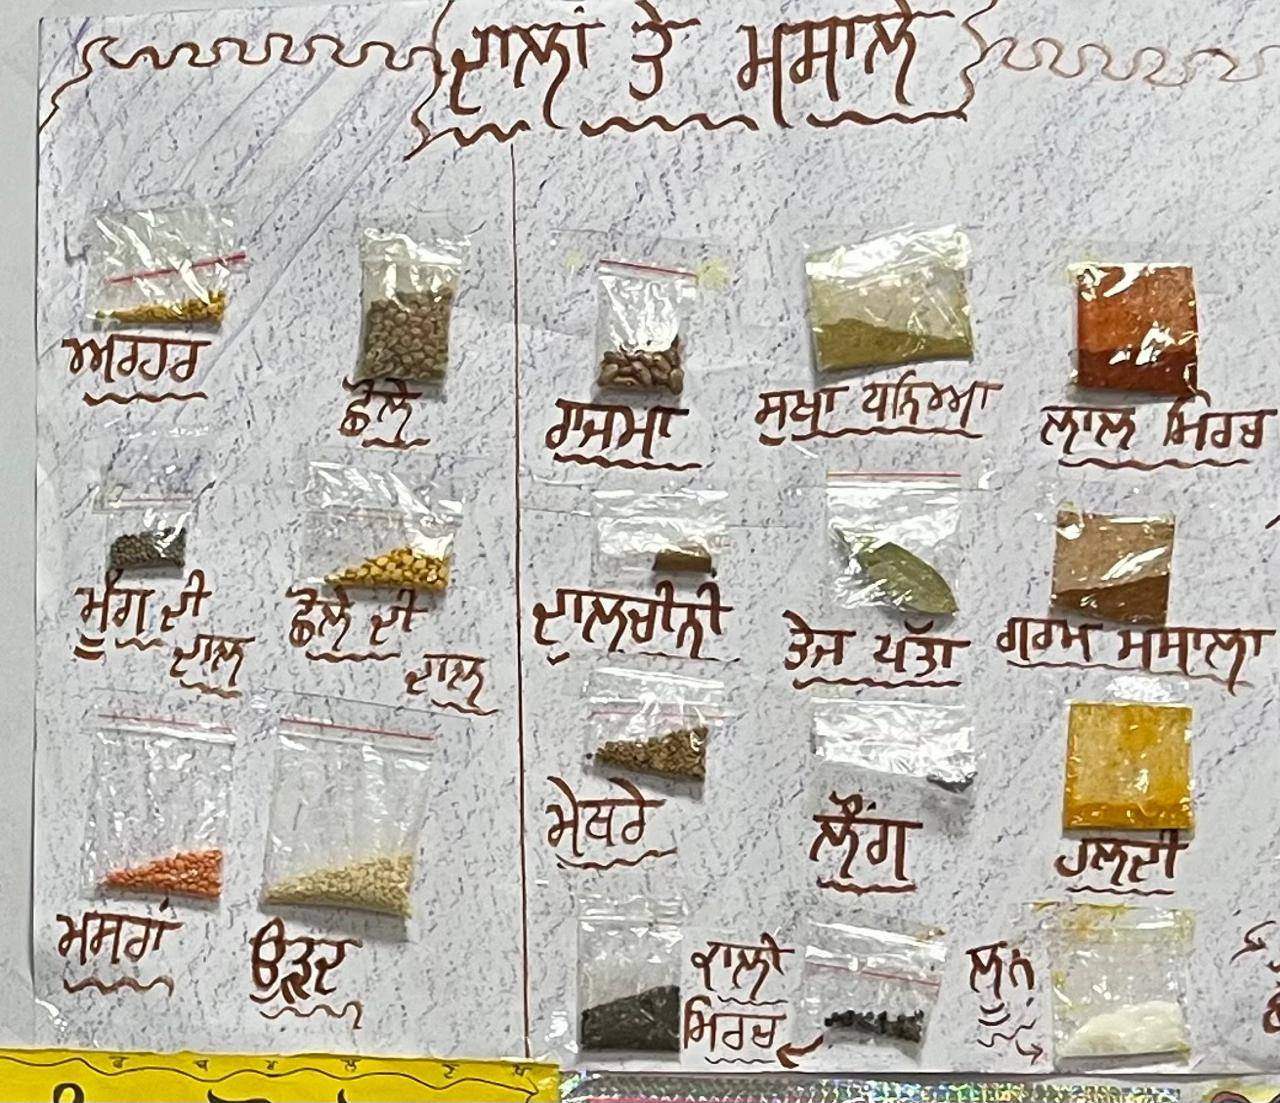 ਦਾਲਾਂ ਤੇ ਮਸਾਲੇ
ਅਰਹਰ
ਛੋਲੇ
ਰਾਜਮਾ
ਸੁਖਾ ਧਨਿਆ
ਲਾਲ ਮਿਰਚ
ਮੂੰਗ ਦੀ
ਦਾਲ
ਛੋਲੇ ਦੀ
ਦਾਲ
ਦਾਲਚੀਨੀ
ਤੇਜ ਪੱਤਾ
ਗਰਮ ਮਸਾਲਾ
ਮਸਰਾਂ
ਉੜਦ
ਮੇਥਰੇ
ਲੌਂਗ
ਹਲਦੀ
ਕਾਲੀ
ਮਿਰਚ
ਲੂਨ